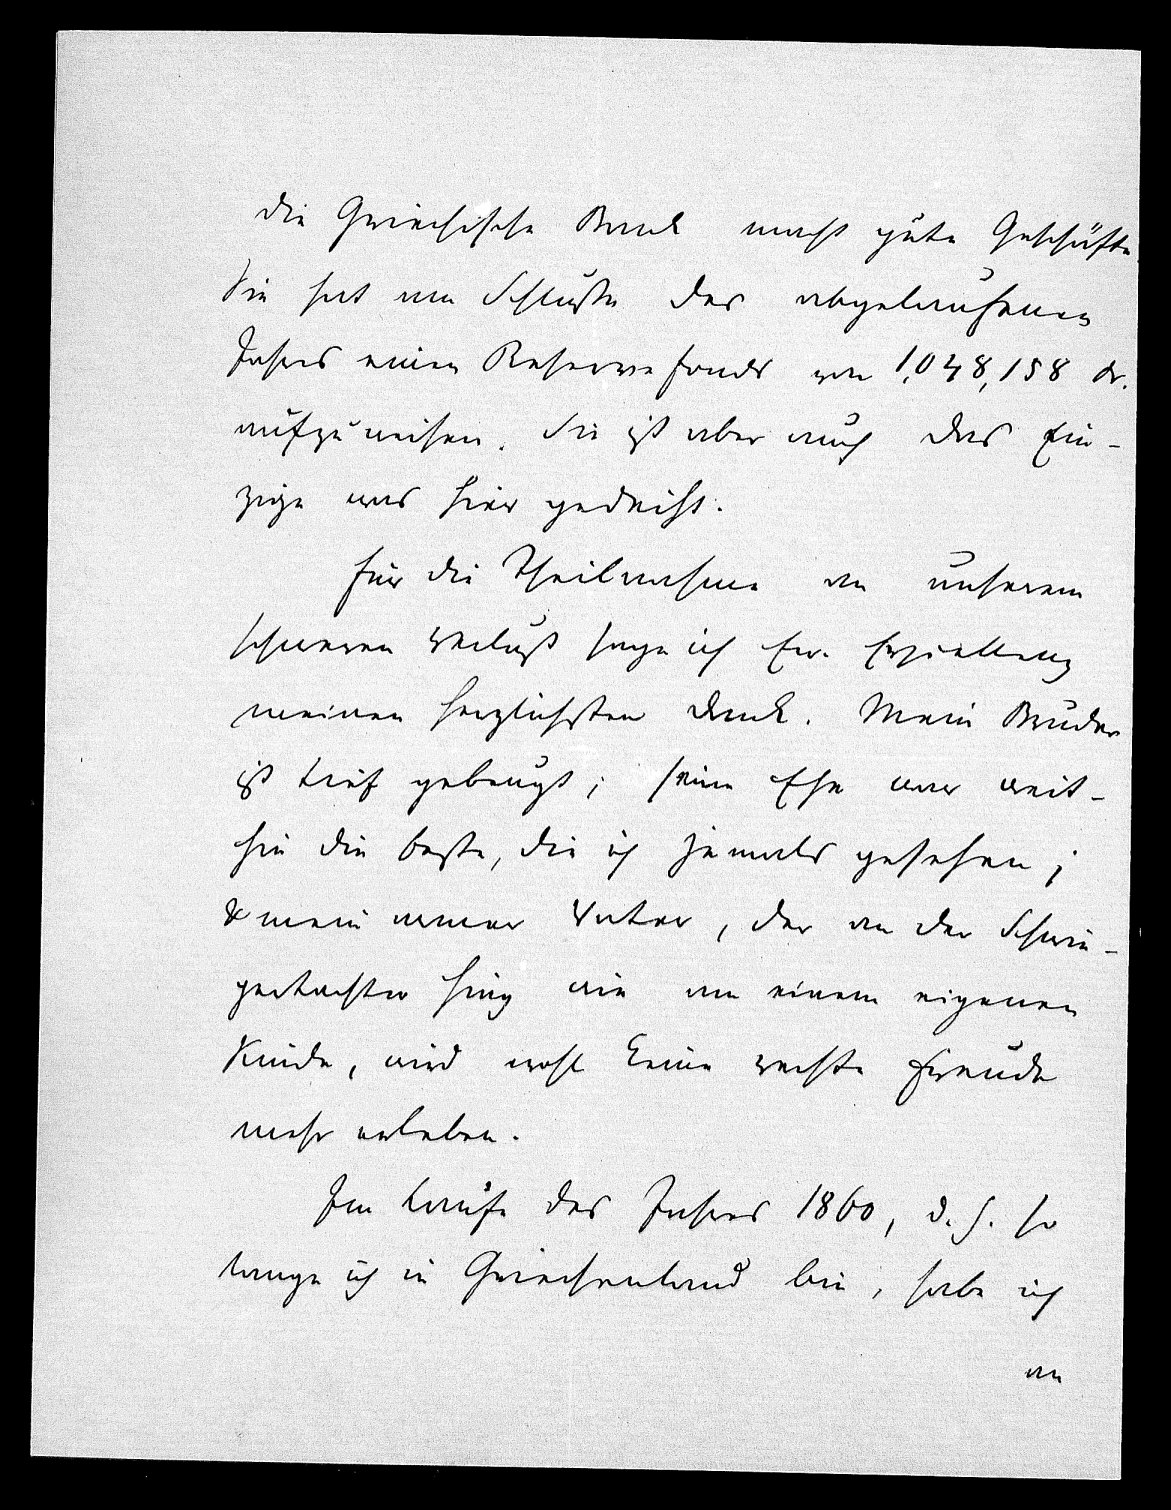 Die Griechische Bank macht gute Geschäfte.
Sie hat am Schluße des abgelaufenen
Jahres einen Reservefonds von 1,048,158 dr.
aufzuweisen. Sie ist aber auch das Ein-
zige was hier gedeiht.
Für die Theilnahme an unserem
schweren Verlust sage ich Ew. Excellenz
meinen herzlichsten Dank. Mein Bruder
ist tief gebeugt; seine Ehe war weit-
hin die beste, die ich jemals gesehen;
& mein armer Vater, der an der Schwie-
gertochter hing wie an einem eigenen
Kinde, wird wohl keine rechte Freude
mehr erleben.
Im Laufe des Jahres 1860, d. h. so
lange ich in Griechenland bin, habe ich
an